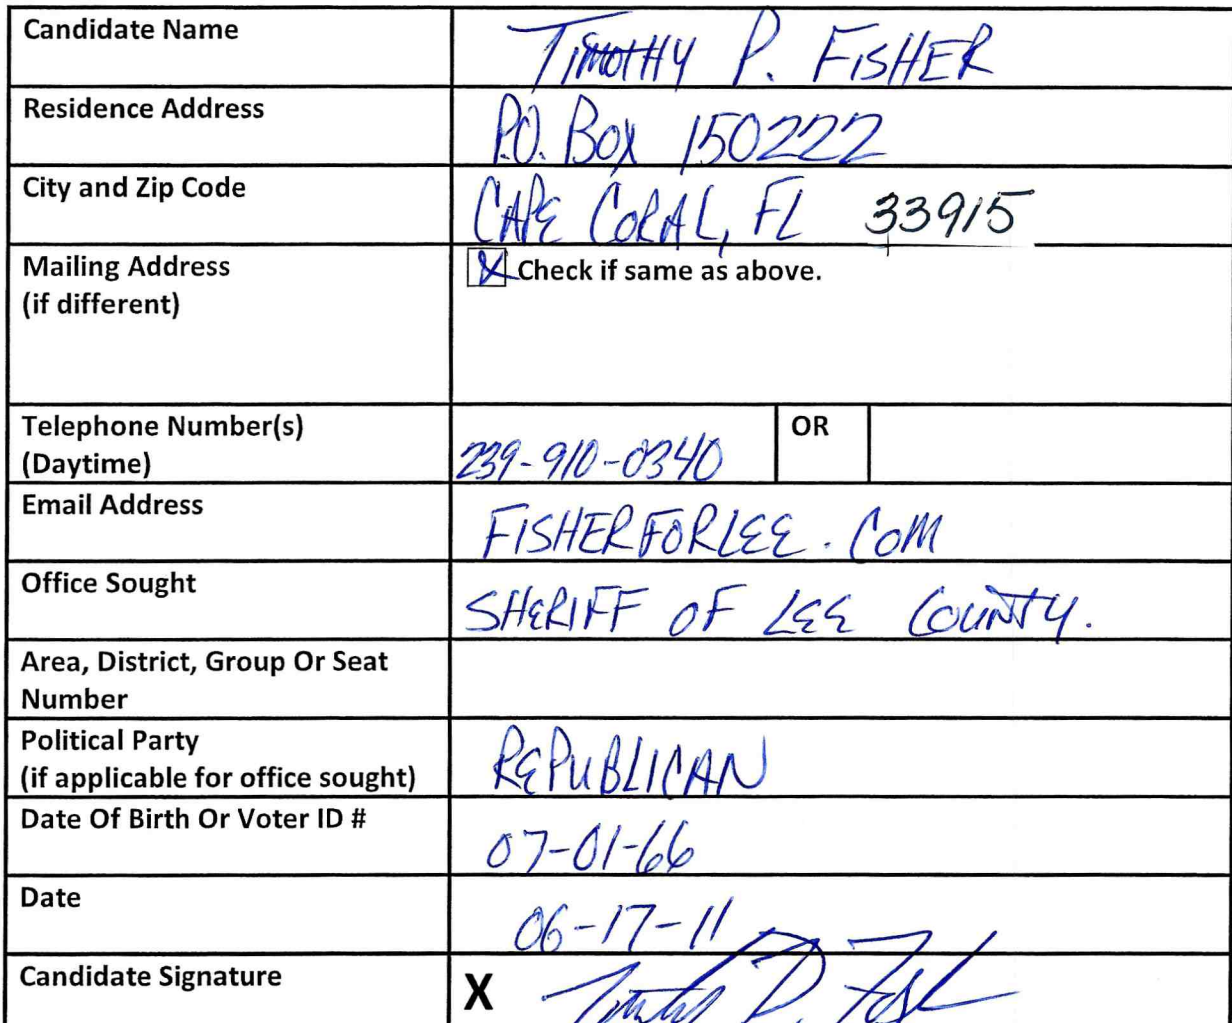 Candidate Name TIMOTHY P. FISHER
Residence Address P.O. BOX 150222
City and Zip Code CAPE CORAL, FL 33915
Mailing Address X Check if same as above.
(if different)
Telephone Number(s) OR
(Daytime) 239-910-0340
Email Address FISHERFORLEE.COM
Office Sought SHERIFF OF LEE COUNTY.
Area, District, Group Or Seat
Number
Political Party REPUBLICAN
(if applicable for office sought)
Date Of Birth Or Voter ID # 07-01-66
Date 06-17-11
Candidate Signature X Timothy P. Fisher